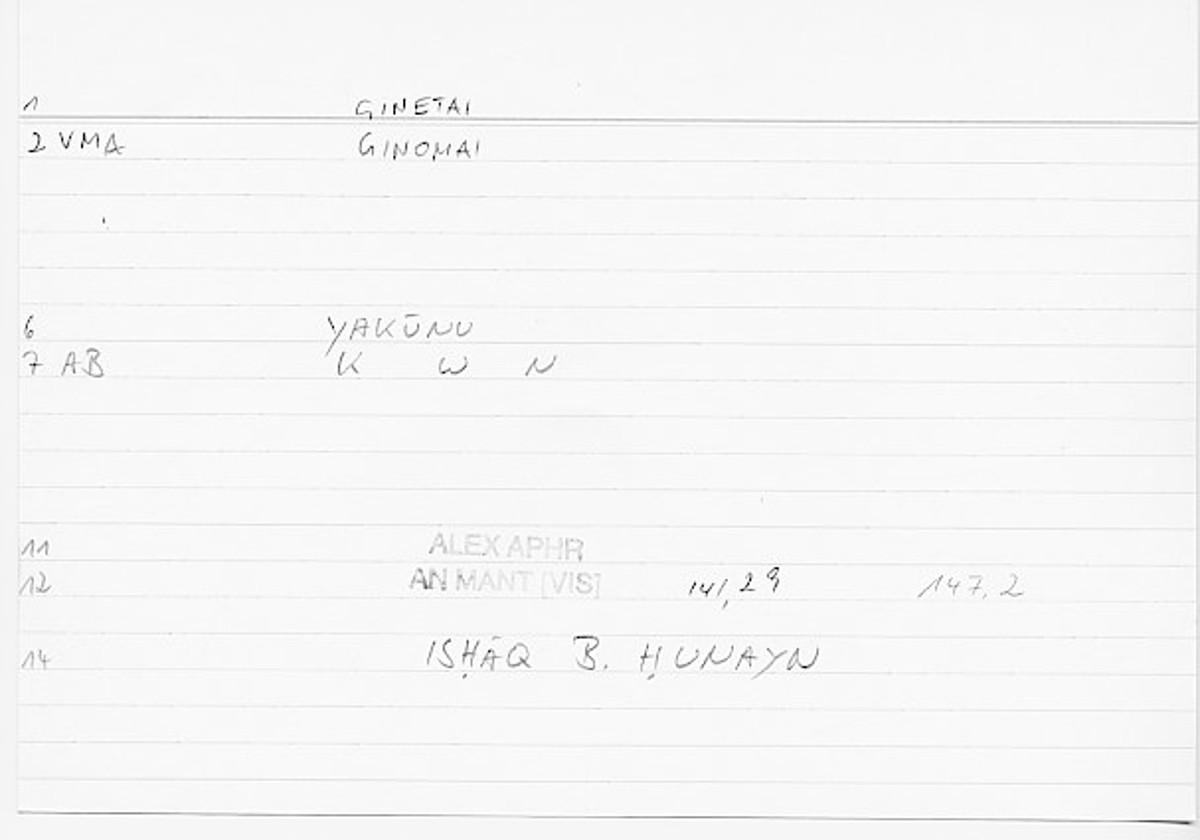 1 GINETAI
2 VMA GINOMAI
6 YAKŪNU
7 AB K W N
11 ALEX APHR
12 AN MANT [VIS] 141,29 147,2
14 ISḤĀQ B. ḤUNAYN